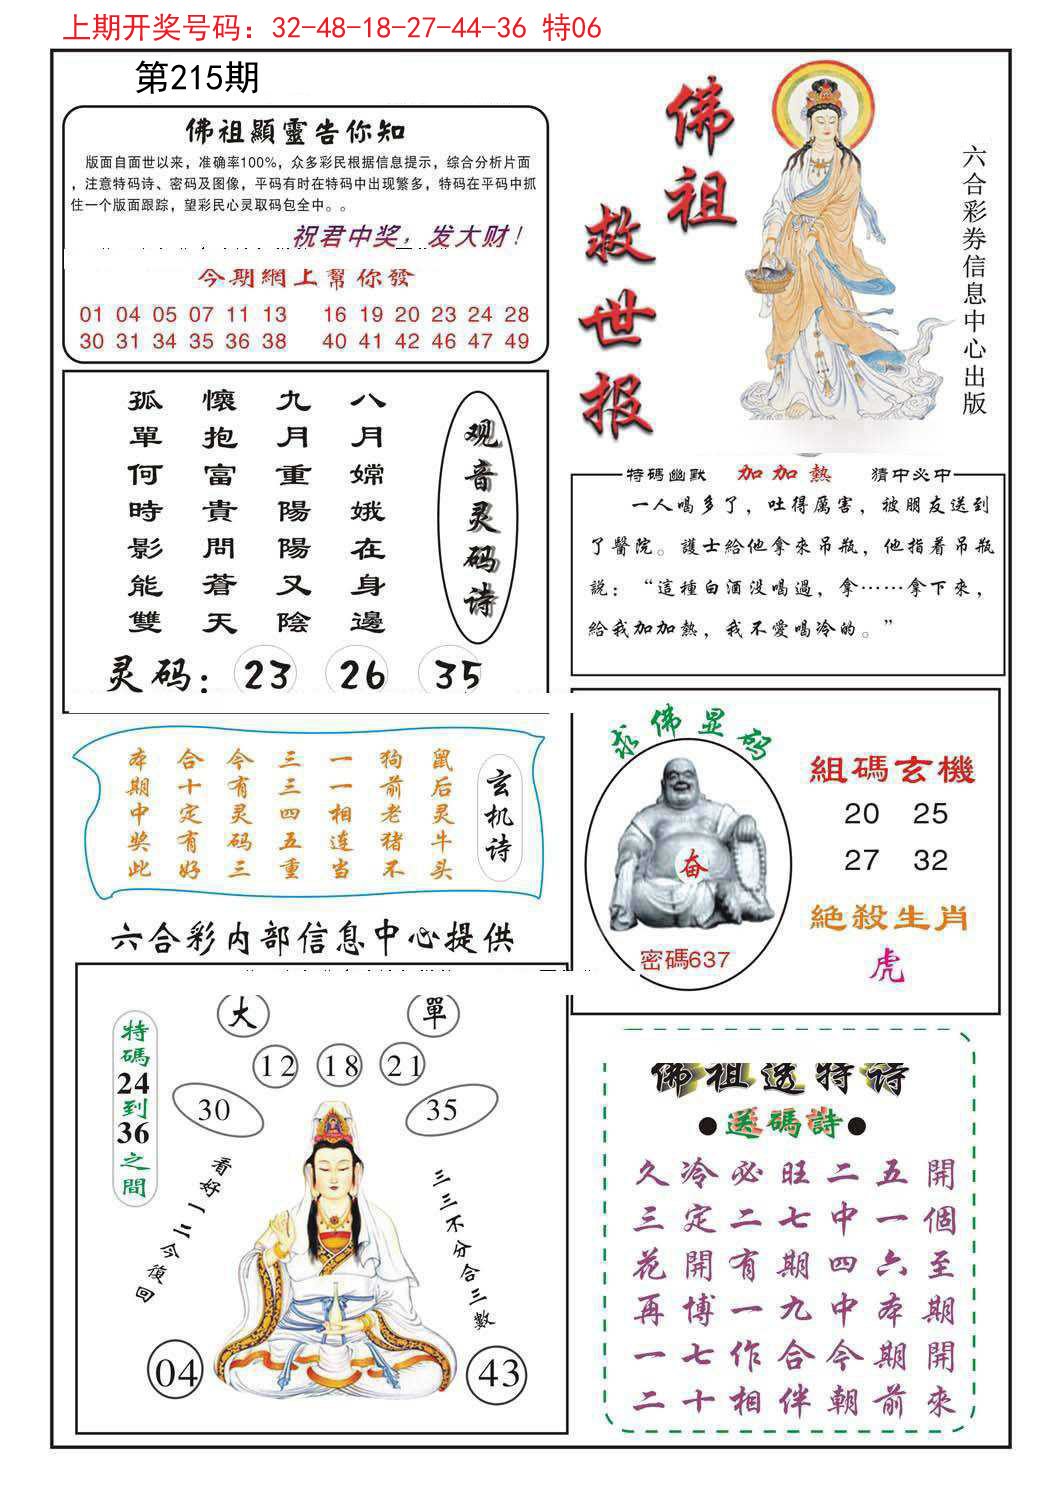 上期开奖号码：32-48-18-27-44-36 特06
第215期
佛祖顯靈告你知
版面自面世以来，准确率100%，众多彩民根据信息提示，综合分析片面
，注意特码诗、密码及图像，平码有时在特码中出现繁多，特码在平码中抓
住一个版面跟踪，望彩民心灵取码包全中。。
祝君中奖，发大财！
今期網上幫你發
01 04 05 07 11 13 16 19 20 23 24 28
30 31 34 35 36 38 40 41 42 46 47 49
佛祖
救世报
六合彩券信息中心出版
观音灵码诗
八月嫦娥在身邊
九月重陽陽又陰
懷抱富貴問蒼天
孤單何時影能雙
灵码：23 26 35
特碼幽默 加加熱 猜中必中
一人喝多了，吐得厲害，被朋友送到
了醫院。護士給他拿來吊瓶，他指着吊瓶
説：“這種白酒没喝過，拿……拿下來，
給我加加熱，我不愛喝冷的。”
玄机诗
鼠后灵牛头
狗前老猪不
一一相连当
三三四五重
今有灵码三
合十定有好
本期中奖此
求佛显码
奋
密碼637
組碼玄機
20 25
27 32
絶殺生肖
虎
六合彩内部信息中心提供
特碼24到36之間
大 單
12 18 21
30 35
看好一二今復回
三三不分合三數
04 43
佛祖透特诗
●送碼詩●
久冷必旺二五開
三定二七中一個
花開有期四六至
再博一九中本期
一七作合今期開
二十相伴朝前來